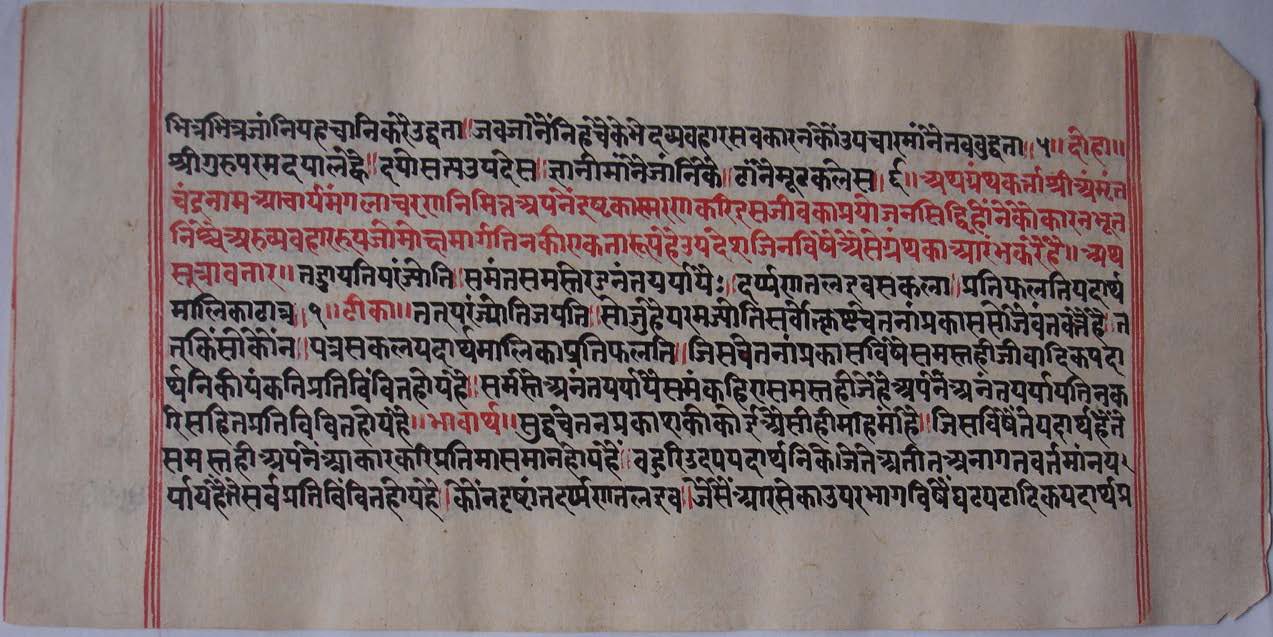 भिन्नभिन्नजांनिपहचानिकरैउद्दता॥जवजांनैंनिहचैकेभेदव्यवहारसवकारनकौंउपचारमांनैतवबुद्दता॥५॥दोहा॥
श्रीगुरुपरमदयालह्वै॥दयोसत्यउपदेस॥ज्ञानीमांनैजांनिकै॥ठांनैमूढकलेस॥६॥अथग्रंथकर्त्ताश्रीअमृत
चंद्रनामआचार्यमंगलाचरणनिमित्तअपनेंइष्टकास्मरणकरिइसजीवकाप्रयोजनसिद्धिहोंनेकोकारनभूत
निश्चैअरुव्यवहाररुपजोमोक्षमार्गतिनकीएकतारूपहैउपदेशजिनविषेंऐसेग्रंथकाआरंभकरैहै॥अथ
सूत्रावतार॥तज्जयतिपरंज्योति॥समंतसमस्तैरनंतपर्यायैः॥दर्प्पणतलइवसकला॥प्रतिफलतिपदार्थ
मालिकाटात्र॥१॥टीका॥ततपरंज्योतिजयति॥सोजुहैपरमज्योतिसर्वोत्कृष्टचेतनांप्रकाससोजैवंतवर्त्तैहै॥त
तकिंसोकौंन॥पत्रसकलपदार्थमालिकाप्रतिफलति॥जिसचेतनांप्रकासविषेंसमस्तहीजीवादिकपदा
र्थनिकीपंकतिप्रतिविंवितहोयहै॥समस्तैअनंतपर्यायैसमंकहिएसमस्तहीजेहैअपनैअनंतपर्यायतिनक
रिसहितप्रतिविंवितहोयहै॥भावार्थ॥सुद्धचेतनप्रकाशकीकोईऐसीहीमहिमांहै॥जिसविषेंजेतेपदार्थहैंतें
समस्तहीअपनेआकारकरिप्रतिमासमानहोयहैं॥वहुरिउदपपदार्थनिकेजेतेअतीतअनागतवर्तमांनप
र्यायहैंतेसर्वप्रतिविंवितहोयहै॥कौंनदृष्टांतदर्प्पणतलइव॥जैसेंआरसेकाउपरभागविषेंघटपटादिकपदार्थप्र